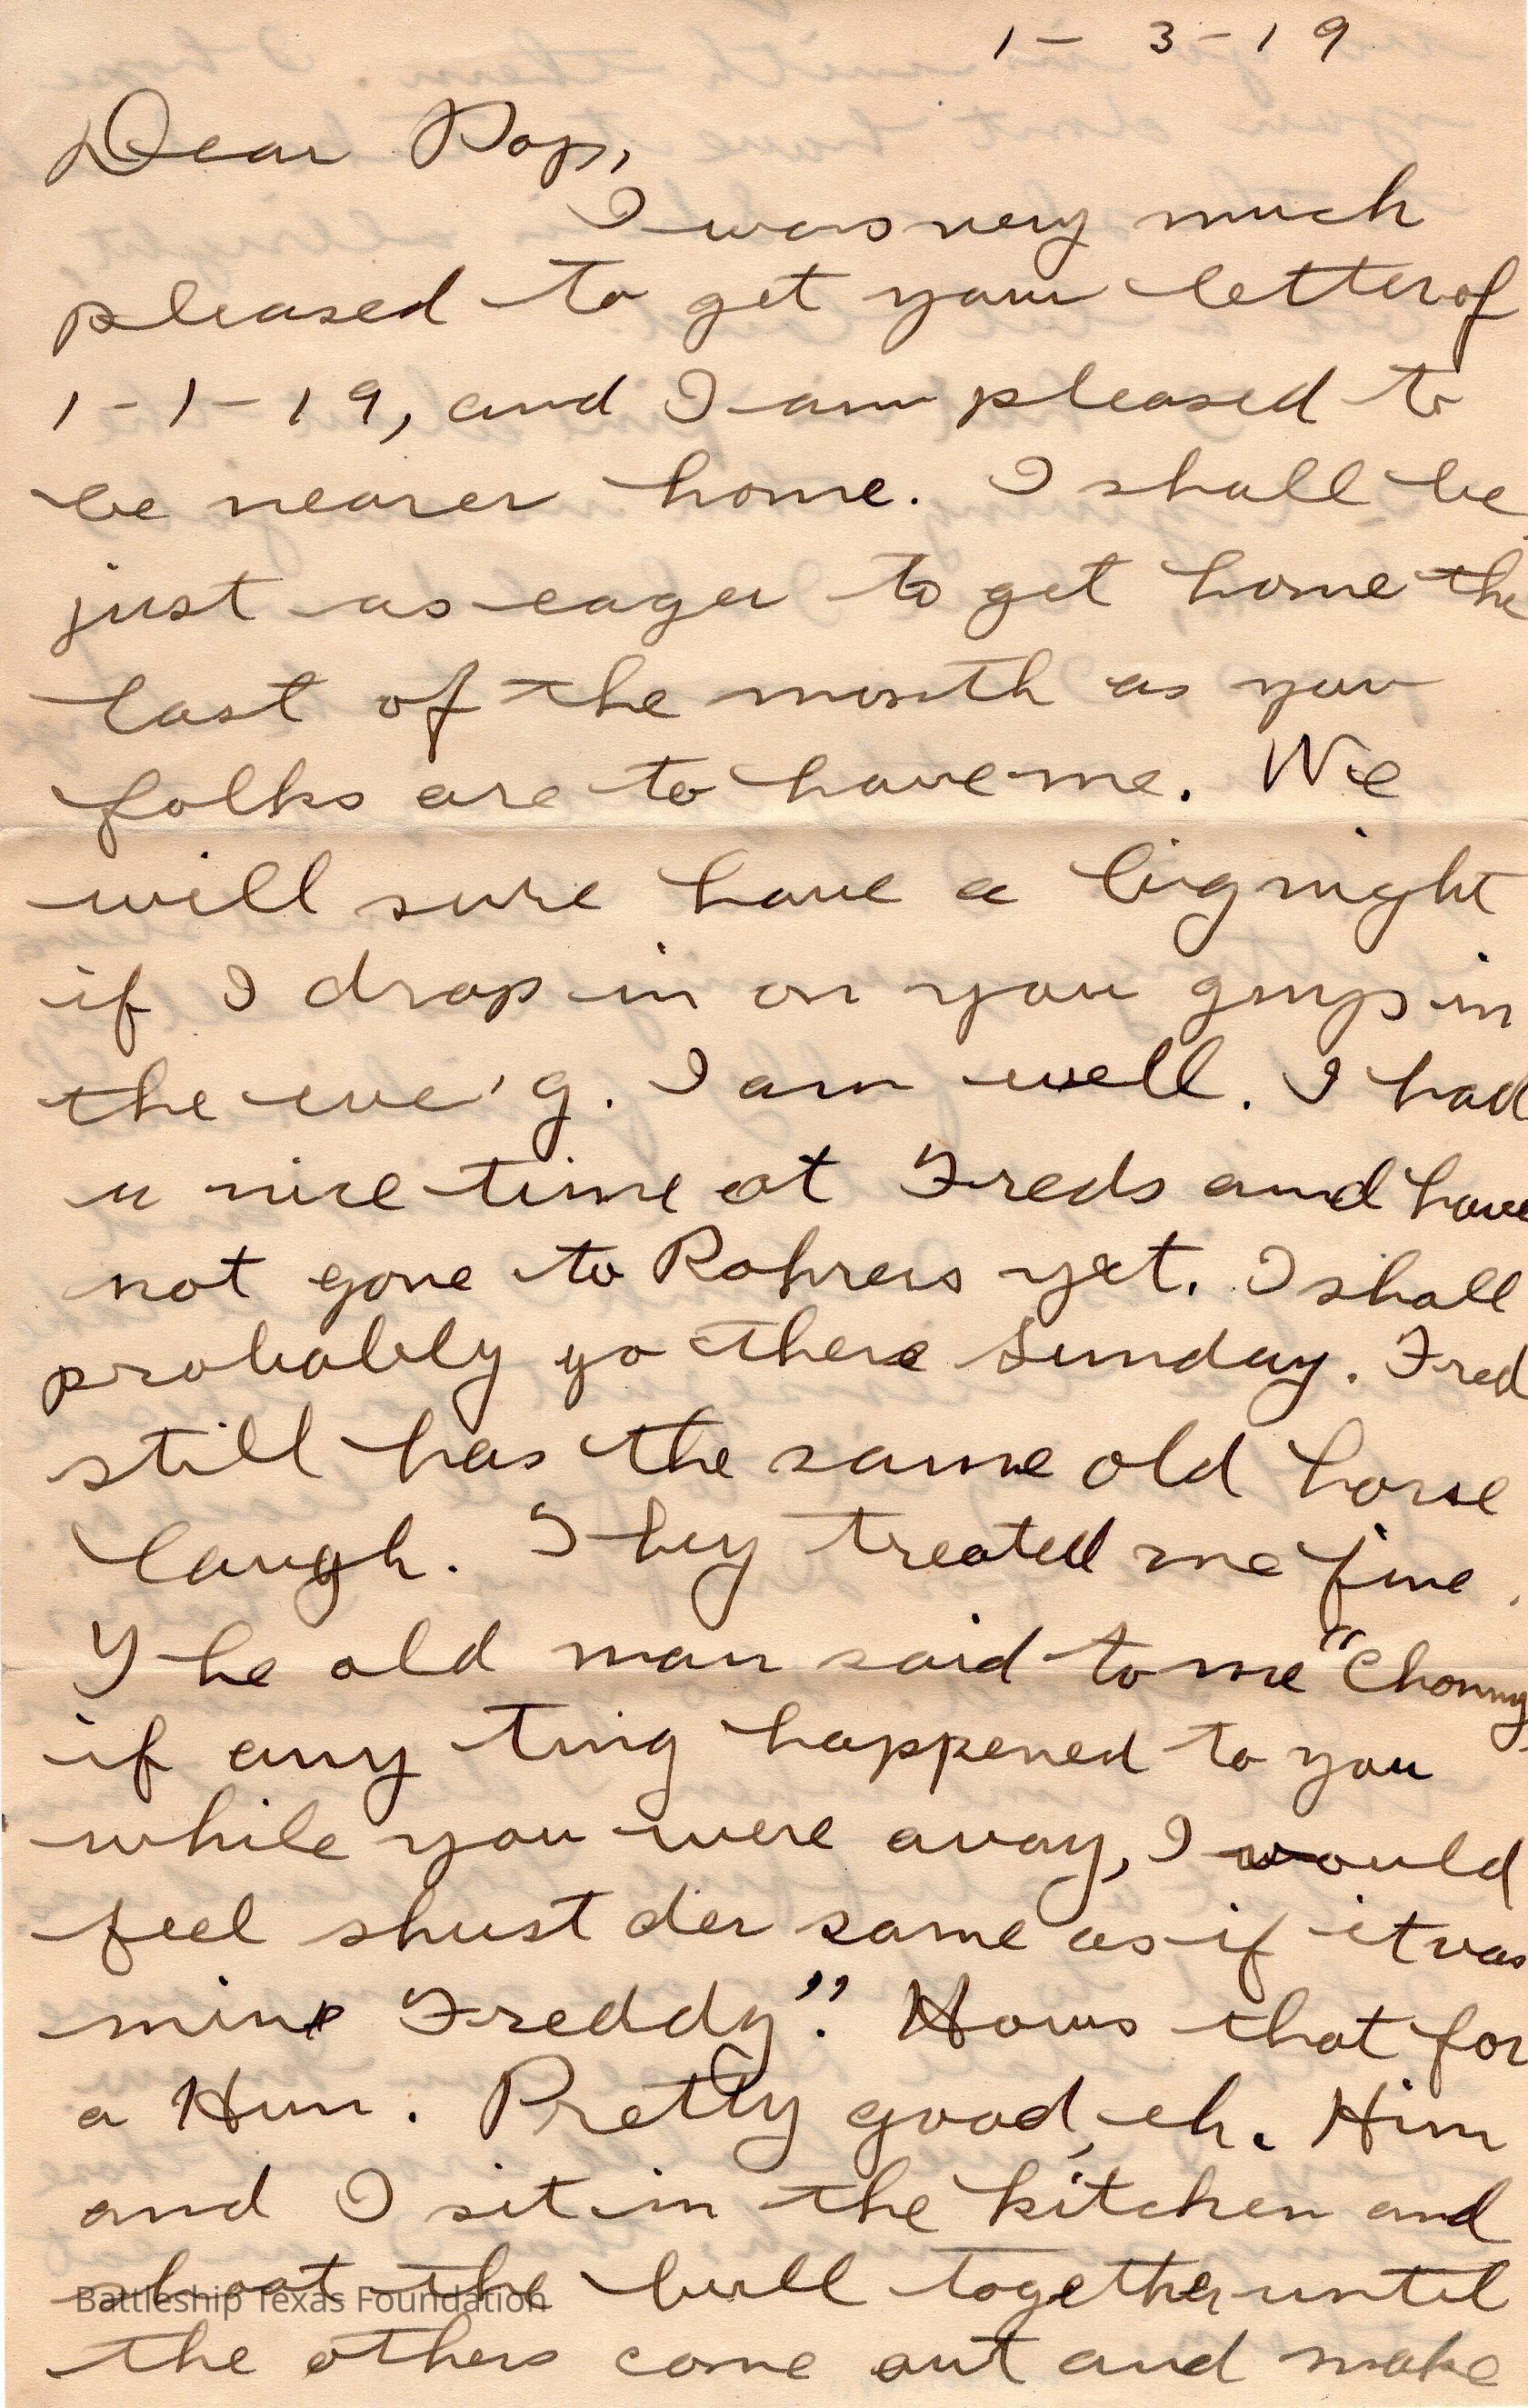 1 - 3 - 19
Dear Pop,
I was very much
pleased to get your letter of
1 - 1 - 19, and I am pleased to
be nearer home. I shall be
just as eager to get home the
last of the month as you
folks are to have me. We
will sure have a big night
if I drop in on you guys in
the eve'g. I am well. I had
a nice time at Freds and have
not gone to Rohrers yet. I shall
probably go there Sunday. Fred
still has the same old horse
laugh. They treated me fine.
The old man said to me "Chonny,
if any ting happened to you
while you were avay, I would
feel shust der same as if it vas
mine Freddy". Hows that for
a Hun. Pretty good, eh. Him
and I sit in the kitchen and
shoot the bull together until
Battleship Texas Foundation
the others come out and make